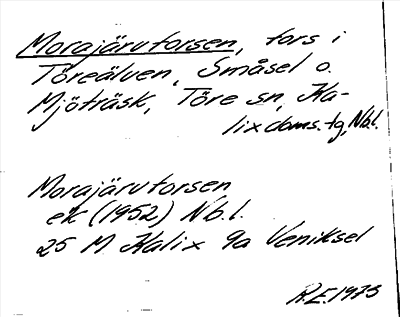 Morajärvforsen, fors i
Töreälven, Småsel o.
Mjöträsk, Töre sn, Ka-
lix doms. tg, Nb.l.
Morajärvforsen
ek (1952) Nb.l.
25 M Kalix 9a Veniksel
R.E. 1973